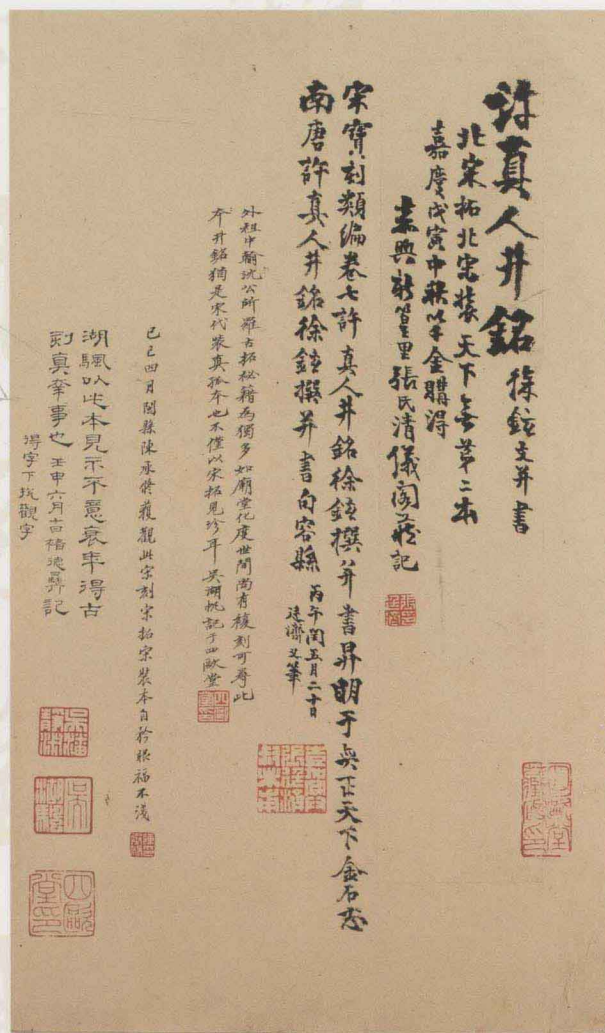 許真人井銘 徐鉉文并書
北宋拓北宋裝天下無第二本
嘉慶戊寅中秋以十金購得
嘉興新篁里張氏清儀閣藏記
宋寶刻類編卷七許真人井銘徐鉉撰并書昇明于奕正天下金石志
南唐許真人井銘徐鉉撰并書句容縣 丙午閏五月二十日
廷濟又筆
外祖中翰沈公所羅古拓秘籍為獨多如廟堂化度世間尚有複刻可尋此
本井銘猶是宋代裝真孤本也不僅以宋拓見珍耳 吳湖帆記于四歐堂
己巳四月閩縣陳承修獲觀此宋刻宋拓宋裝本自矜眼福不淺
湖颿以此本見示不意衰年得古
刻真幸事也 壬申六月吉褚德彝記
得字下挩觀字
四歐堂印